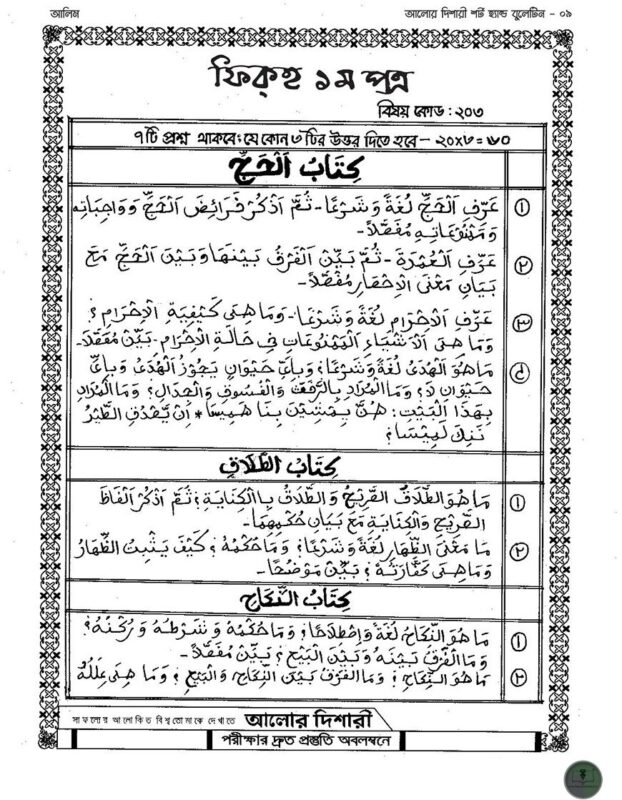 আলিম
আলোর দিশারী শর্ট হ্যান্ড বুলেটিন - ০৯
ফিক্‌হ ১ম পত্র
বিষয় কোড : ২০৩
৭টি প্রশ্ন থাকবে; যে কোন ৩টির উত্তর দিতে হবে – ২০x৩=৬০
كِتَابُ الْحَجِّ
① عَرِّفِ الْحَجَّ لُغَةً وَشَرْعًا - ثُمَّ اذْكُرْ فَرَائِضَ الْحَجِّ وَوَاجِبَاتِه
وَمَمْنُوْعَاتِهِ مُفَصَّلاً -
② عَرِّفِ الْعُمْرَةَ - ثُمَّ بَيِّنِ الْفَرْقَ بَيْنَهَا وَبَيْنَ الْحَجِّ مَعَ
بَيَانِ مَعْنَى الْإِحْصَارِ مُفَصَّلاً -
③ عَرِّفِ الْإِحْرَامَ لُغَةً وَشَرْعًا - وَمَا هِىَ كَيْفِيَةُ الْإِحْرَامِ؟
وَمَا هِىَ الْأَشْيَاءُ الْمَمْنُوْعَاتُ فِى حَالَةِ الْإِحْرَامِ - بَيِّنْ مُفَصَّلاً -
مَا هُوَ الْهَدْىُ لُغَةً وَشَرْعًا؟ وَبِأَىِّ حَيْوَانٍ يَجُوْزُ الْهَدْىُ وَبِأَىِّ
حَيْوَانٍ لَا؟ وَمَا الْمُرَادُ بِالرَّفَثِ وَالْفُسُوْقِ وَالْجِدَالِ؟ وَمَا الْمُرَادُ
بِهٰذَا الْبَيْتِ: هُنَّ يَمْشِيْنَ بِنَا هَمِيْسًا * اِنْ يَصْدُقِ الطَّيْرُ
نَنِكْ لَمِيْسًا؟
كِتَابُ الطَّلَاقِ
① مَا هُوَ الطَّلَاقُ الصَّرِيْحُ وَالطَّلَاقُ بِالْكِنَايَةِ؟ ثُمَّ اذْكُرْ أَلْفَاظَ
الصَّرِيْحِ وَالْكِنَايَةِ مَعَ بَيَانِ حُكْمِهِمَا -
② مَا مَعْنَى الظِّهَارِ لُغَةً وَشَرْعًا؟ وَمَا حُكْمُهُ؟ كَيْفَ يَثْبُتُ الظِّهَارُ
وَمَا هِىَ كَفَّارَتُهُ؟ بَيِّنْ مُوْضِحًا -
كِتَابُ النِّكَاحِ
① مَا هُوَ النِّكَاحُ لُغَةً وَاِصْطِلَاحًا؟ وَمَا حُكْمُهُ وَشَرْطُهُ وَرُكْنُهُ؟
وَمَا الْفَرْقُ بَيْنَهُ وَبَيْنَ الْبَيْعِ؟ بَيِّنْ مُفَصَّلاً -
② مَا هُوَ النِّكَاحُ؟ وَمَا الْفَرْقُ بَيْنَ النِّكَاحِ وَالْبَيْعِ؟ وَمَا هِىَ عِلَلُهُ
সাফল্যের আলোকিত বিশ্ব তোমাকে দেখাতে আলোর দিশারী
পরীক্ষার দ্রুত প্রস্তুতি অবলম্বনে